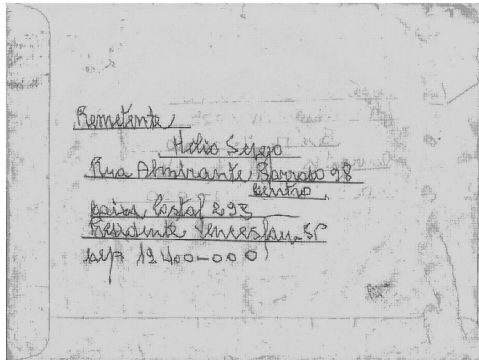 Remetente
Helio Serejo
Rua Almirante Barroso 98
centro
caixa Postal 293
Presidente Venceslau-SP
cep 19400-000